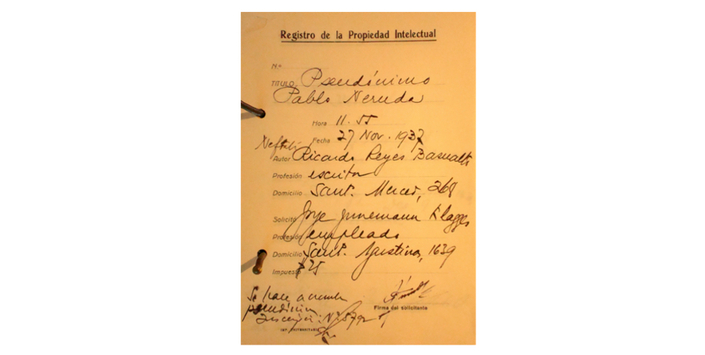 Registro de la Propiedad Intelectual
N.o
TITULO Pseudónimo
Pablo Neruda
Hora 11.55
Fecha 27 Nov. 1937
Neftalí
Autor Ricardo Reyes Basualto
Profesión escritor
Domicilio Sant. Merced, 268
Solicita Jorge
Profesión empleado
Domicilio Sant. Agustinas, 1639
Impuesto $25
Se hace
pseudónimo
Firma del solicitante